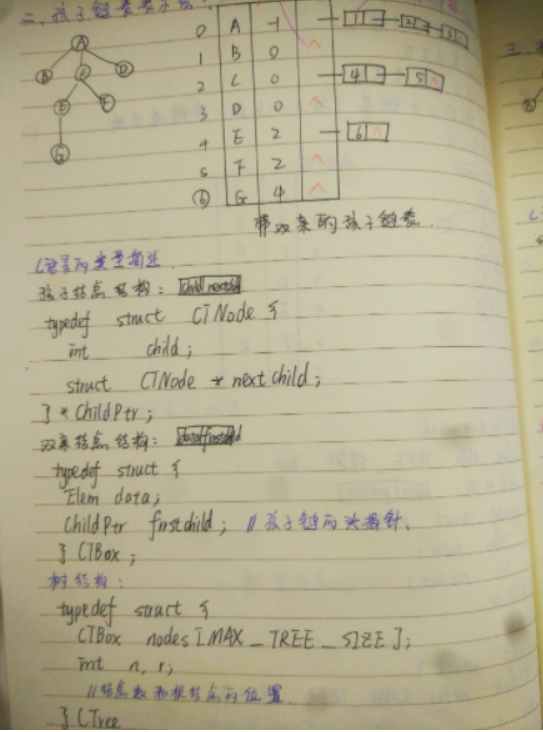 二、孩子链表表示法:
A
B C D
E F
G
0 A -1 1 2 3
1 B 0 ^
2 C 0 4 5 ^
3 D 0 ^
4 E 2 6 ^
5 F 2 ^
6 G 4 ^
带双亲的孩子链表.
C语言的类型描述.
孩子结点结构: child nextchild
typedef struct CTNode {
int child;
struct CTNode * next child;
} * ChildPtr;
双亲结点结构: data firstchild
typedef struct {
Elem data;
ChildPtr firstchild; // 孩子链的头指针.
} CTBox;
树结构:
typedef struct {
CTBox nodes [MAX_TREE_SIZE];
int n, r;
//结点数和根结点的位置.
} CTree